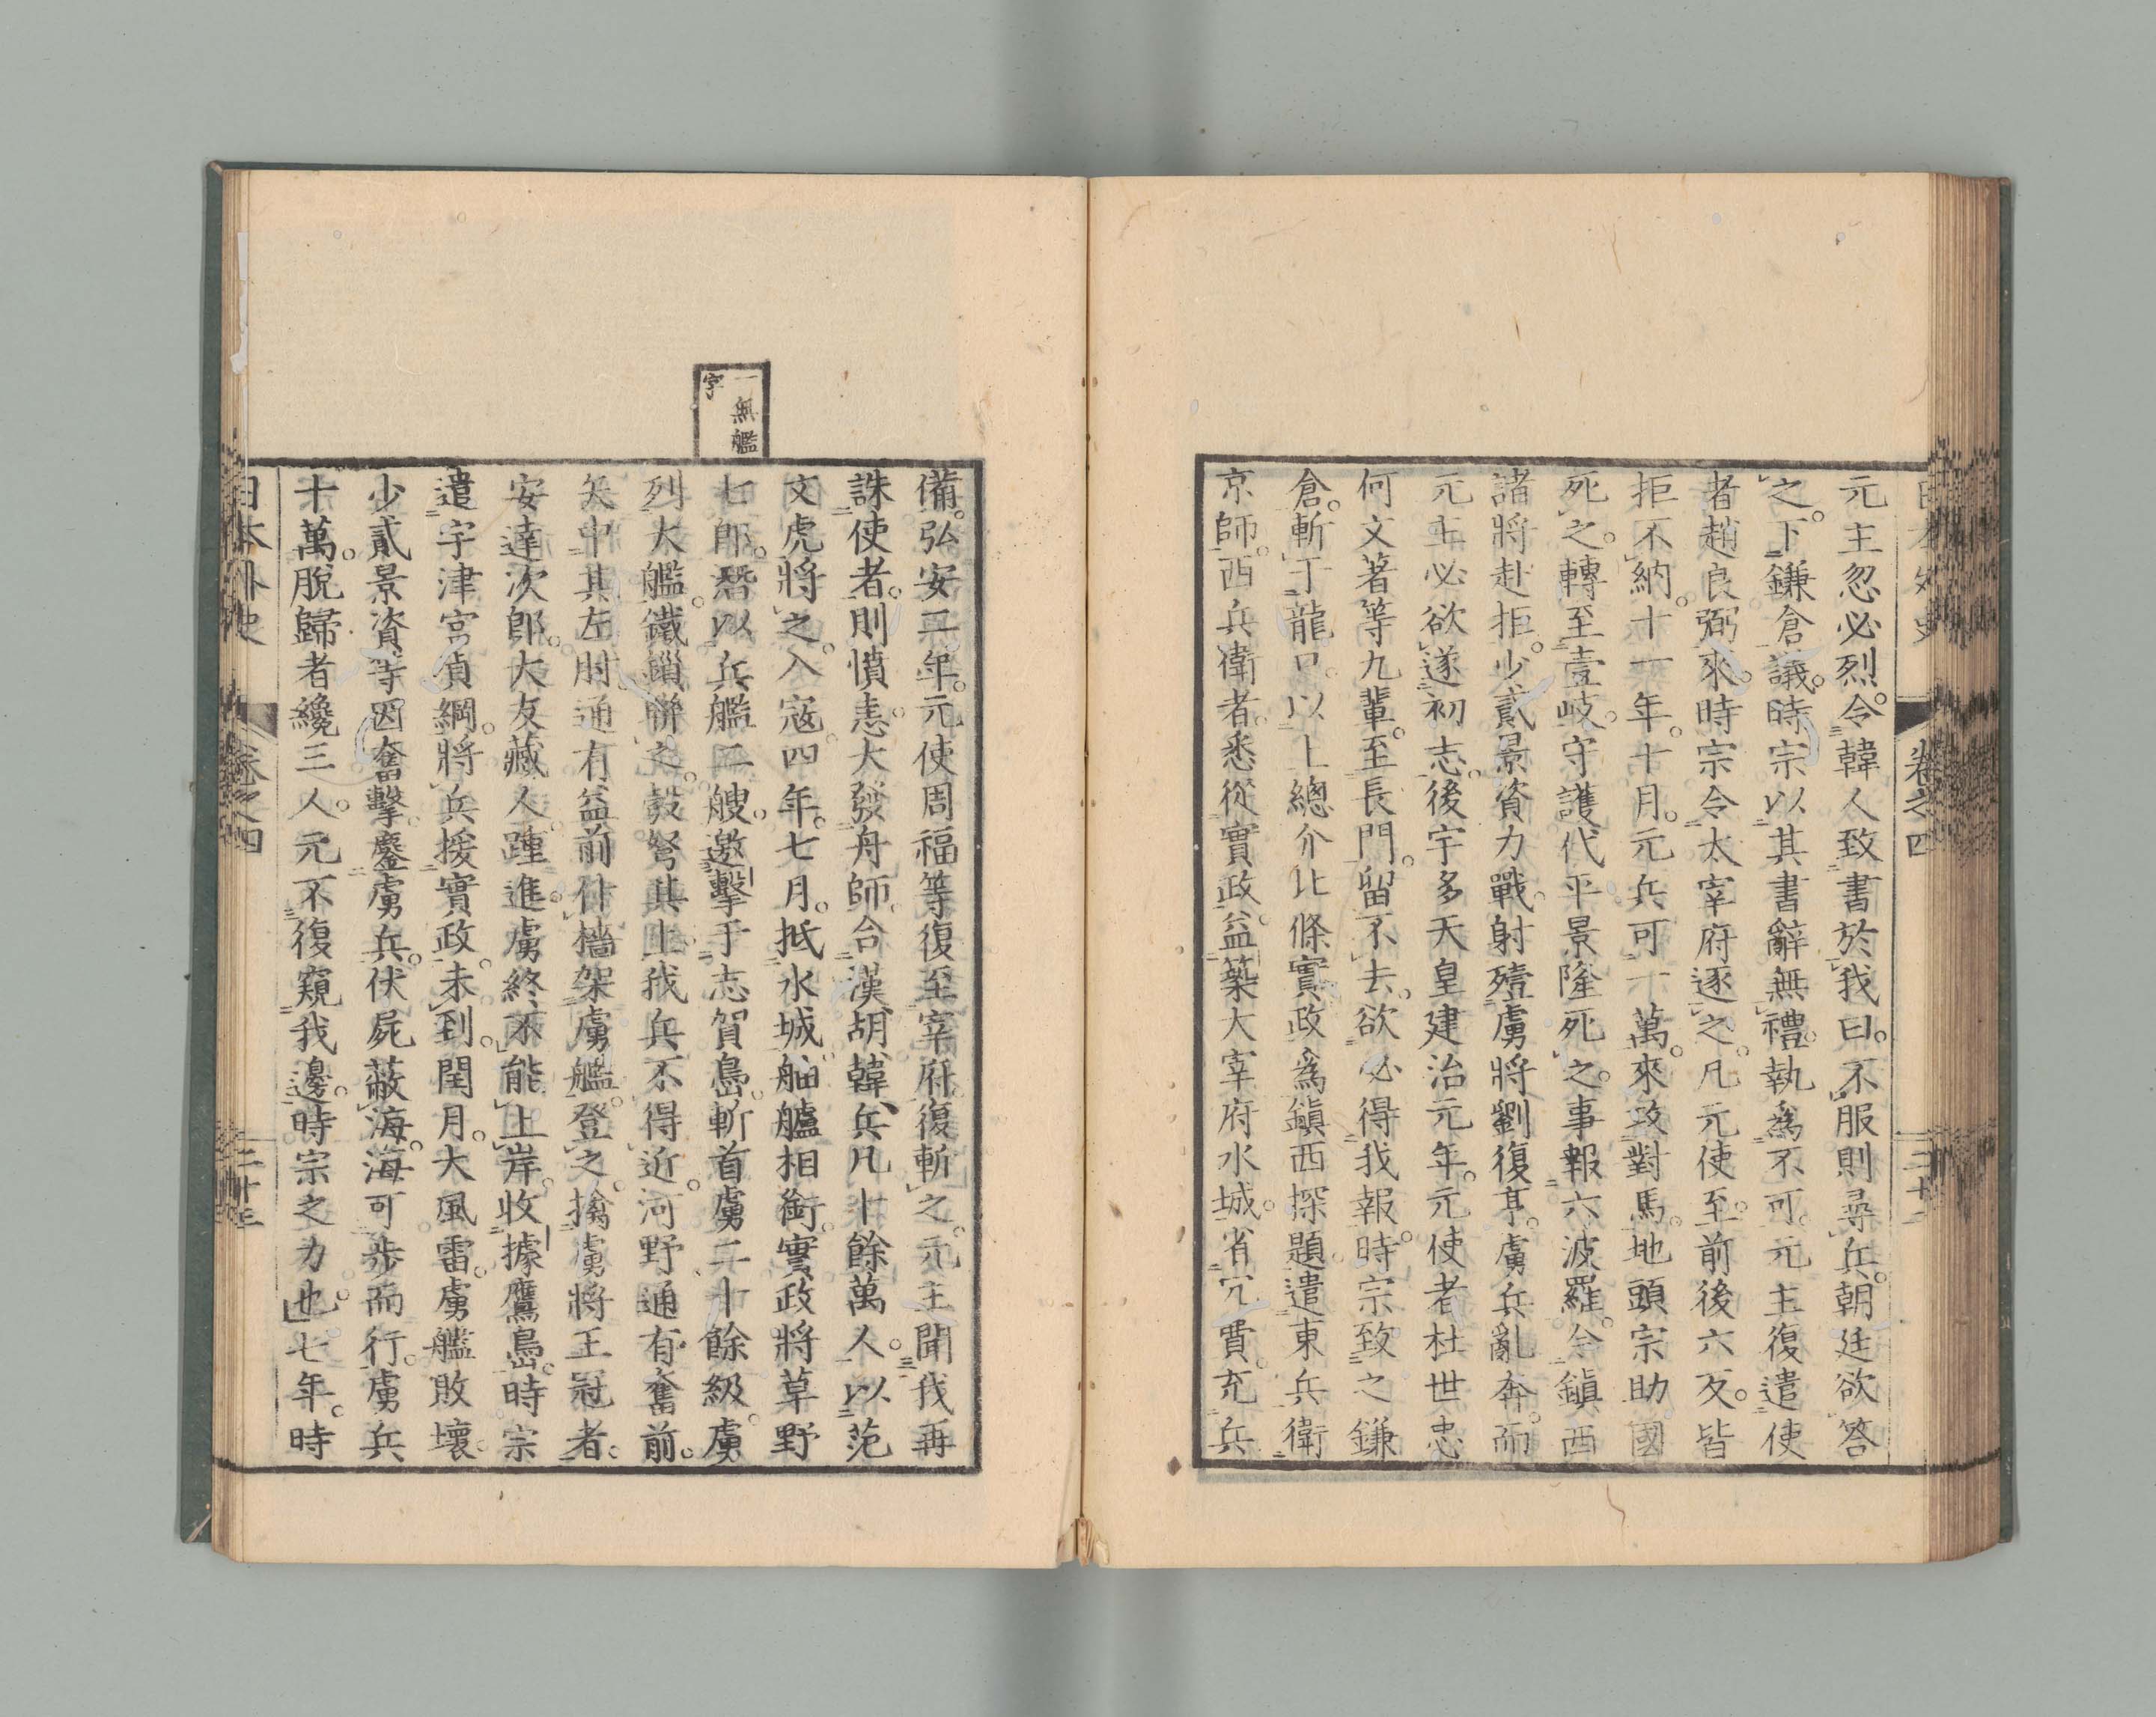 日本外史
卷之四
二十二
元主忽必烈。令韓人致書於我曰。不服則尋兵。朝廷欲答
之。下鎌倉議。時宗以其書辭無禮。執爲不可。元主復遣使
者趙良弼來。時宗令太宰府逐之。凡元使至。前後六反。皆
拒不納。十一年。十月。元兵可一萬。來攻對馬。地頭宗助國
死之。轉至壹岐。守護代平景隆死之。事報六波羅。令鎭西
諸將赴拒。少貳景資力戰。射殪虜將劉復亨。虜兵亂奔。而
元主必欲遂初志。後宇多天皇建治元年。元使者杜世忠
何文著等九輩。至長門。留不去。欲必得我報。時宗致之鎌
倉。斬于龍口。以上總介北條實政爲鎭西探題。遣東兵衛
京師。西兵衛者。悉從實政。益築大宰府水城。省冗費充兵
備。弘安二年。元使周福等復至宰府。復斬之。元主聞我再
誅使者。則憤恚。大發舟師。合漢胡韓兵。凡十餘萬人。以范
文虎將之。入寇。四年。七月。抵水城。舳艫相銜。實政將草野
一無艦
字
七郎。潛以兵艦二艘。邀擊于志賀島。斬首虜二十餘級。虜
列大艦。鐵鎖聯之。彀弩其上。我兵不得近。河野通有奮前。
矢中其左肘。通有益前。仆檣架虜艦。登之。擒虜將王冠者。
安達次郎。大友藏人踵進。虜終不能上岸。收據鷹島。時宗
遣宇津宮貞綱。將兵援實政。未到。閏月。大風雷。虜艦敗壞。
少貳景資等因奮擊。鏖虜兵。伏屍蔽海。海可步而行。虜兵
十萬。脫歸者纔三人。元不復窺我邊。時宗之力也。七年。時
日本外史
卷之四
二十三